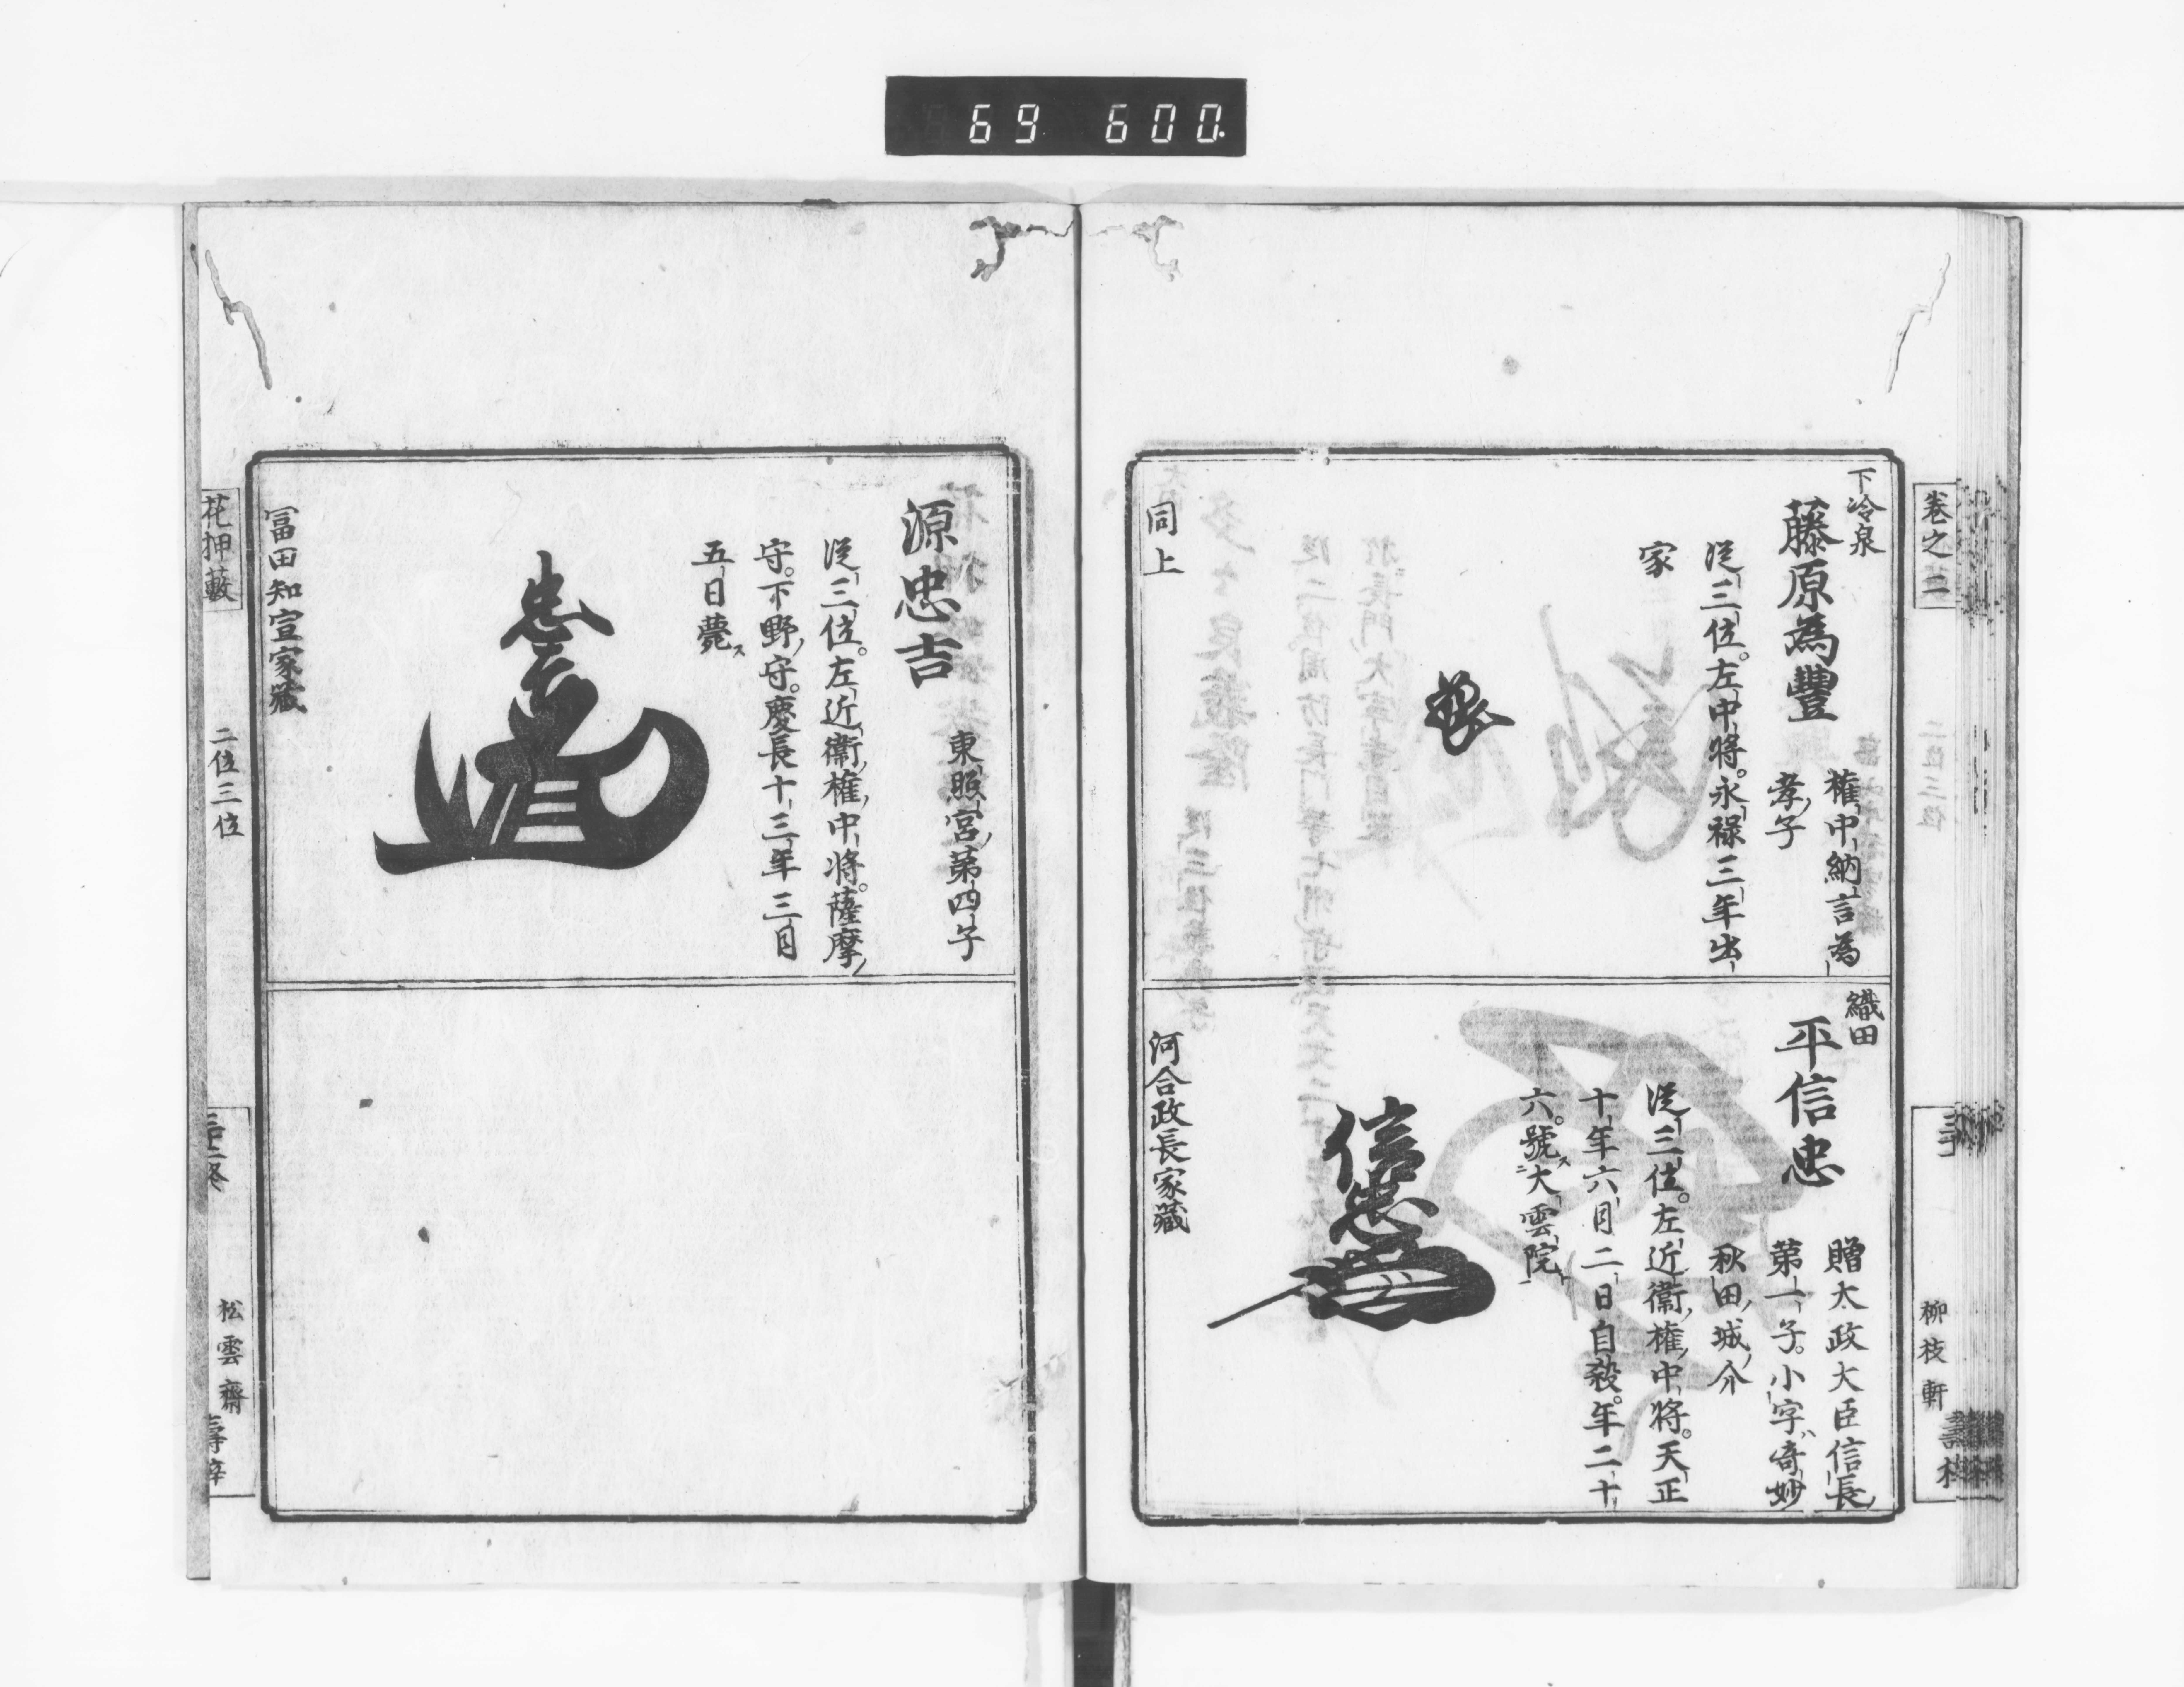 69 600.
巻之二
柳枝軒
下冷泉
藤原為豐
權中納言為
孝子
從三位。左中將。永祿三年出
家
同上
織田
平信忠
贈太政大臣信長
第一子。小字奇妙
秋田城介
從三位。左近衞權中將。天正
十年六月二日自殺。年二十
六。號大雲院
信忠
河合政長家藏
源忠吉
東照宮第四子
從三位。左近衞權中將。薩摩
守。下野守。慶長十三年三月
五日薨ス
忠吉
冨田知宣家藏
花押藪
二位三位
松雲齋